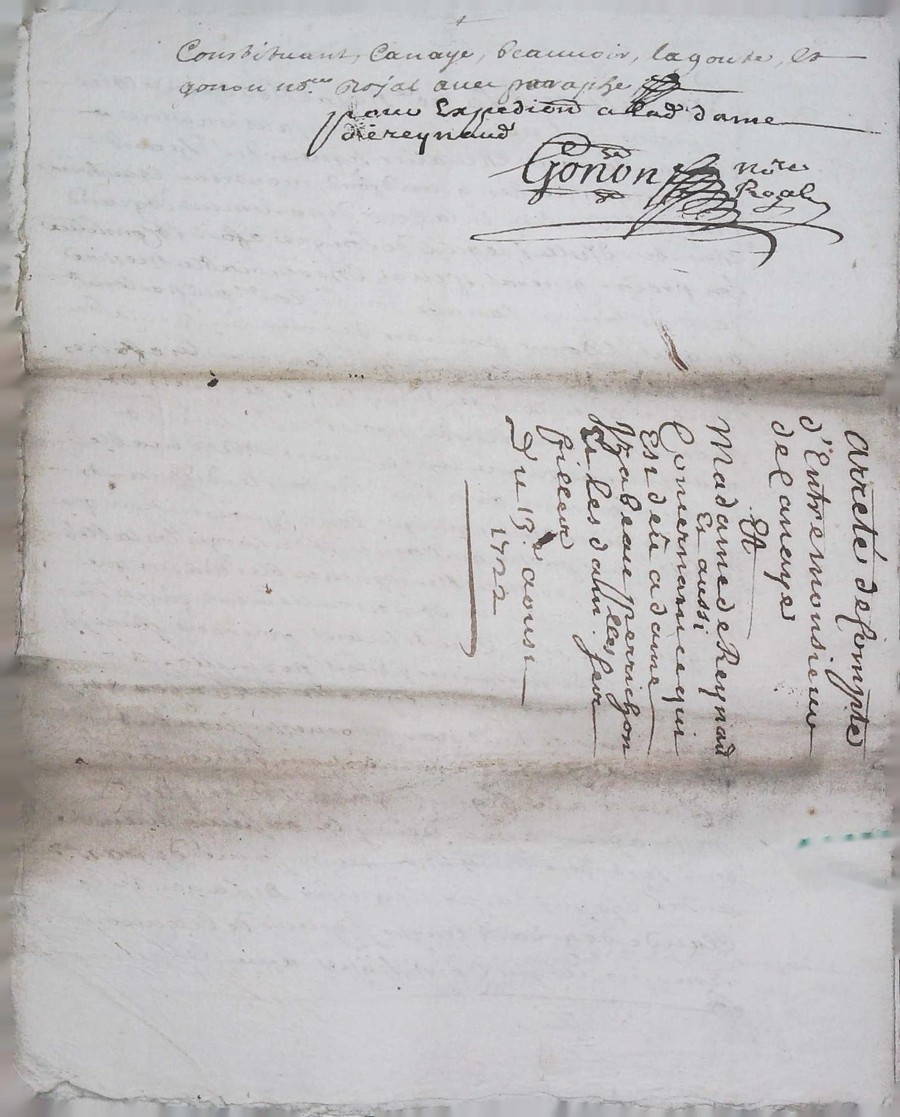 Constituant, Canaye, beauvoir, lagoute, et
gonon no.re Royal avec paraphe
pour Expedion a lad. dame
de reynaud
Gonon no.re
Royal
arreté de Compte
d'Entre monsieur
de Canaye
Et
Madame de Reynaud
Et aussi
Concernant ce qui
Est deu a dame
Yzabeau perrichon
Du 13 d'aoust
1722